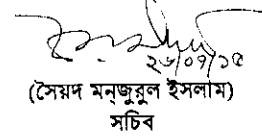 ২৮/০৭/১৫
(সৈয়দ মন্‌জুরুল ইসলাম)
সচিব